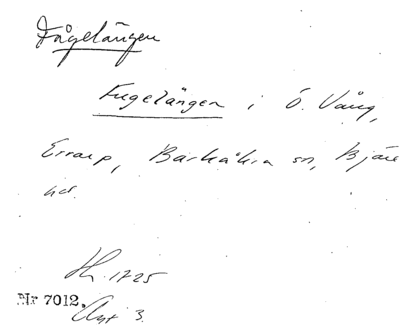 Fågelängen
Fugelängen i Ö. Vång,
Errarp, Barkåkra sn, Bjäre
hd.
1725
Nr 7012. Akt 3.